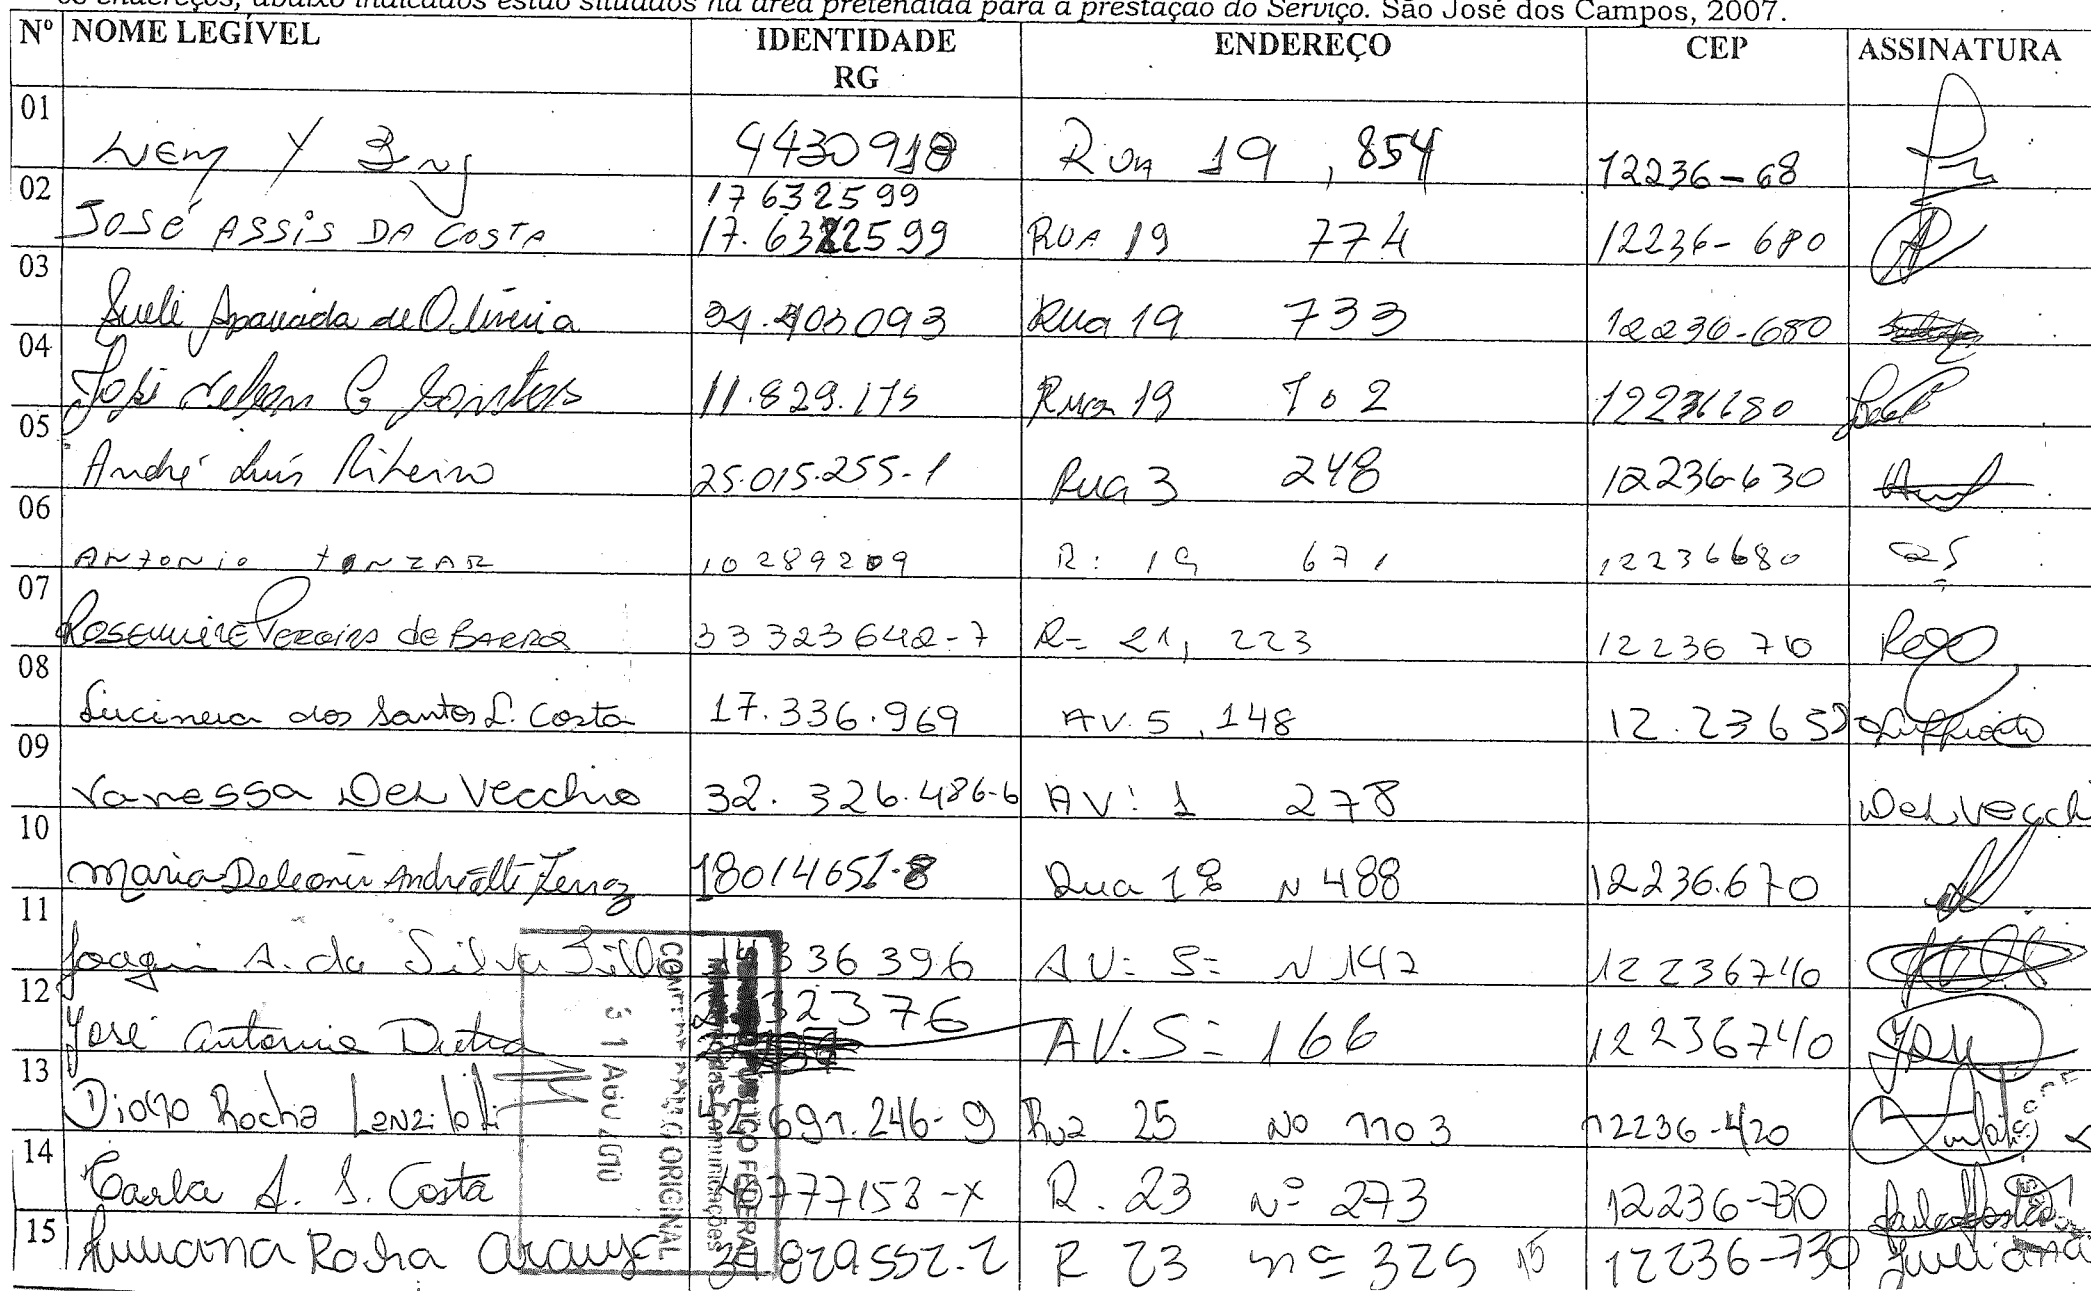 os endereços, abaixo indicados estão situados na área pretendida para a prestação do Serviço. São José dos Campos, 2007.
Nº NOME LEGÍVEL IDENTIDADE RG ENDEREÇO CEP ASSINATURA
01 4430918 Rua 19, 854 12236-68
02 17632599
JOSÉ ASSIS DA COSTA 17. 2599 RUA 19 774 12236-680
03 Sueli Aparecida de Oliveira 093 Rua 19 733 12236-680
04 José Nelson 11.829.175 Rua 19 702 680
05 André Luís Ribeiro 25.015.255-1 Rua 3 248 12236-630
06 ANTONIO 10289209 R: 19 671 12236680
07 ROSEMEIRE PEREIRA de BARROS 33323642-7 R= 21, 223 12236 710
08 Lucineia dos Santos L. Costa 17.336.969 AV. 5, 148 12.2365
09 Vanessa Del Vecchio 32.326.486-6 AV: 1 278 Del Vecchi
10 Maria 18014651-8 Rua 18 N 488 12236.670
11 Joaqui A. da Silva Filho 336396 AV: 5= N 147 12236740
12 José Antonio 32376 AV. 5= 166 12236740
13 Diogo Rocha Lanzilotti 691.246-9 Rua 25 Nº 1103 12236-420
14 Carla A. S. Costa 777153-X R. 23 Nº 273 12236-730
15 Juliana Rocha Araujo 829552-2 R 23 nº 325 15 12236-730 Juliana
SERVIÇO PÚBLICO FEDERAL
Ministério das Comunicações
CONFERE COM O ORIGINAL
31 AGO 2010